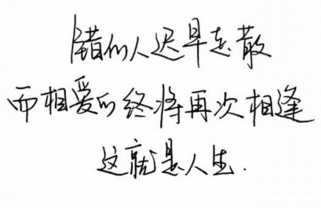 错的人迟早走散
而相爱的终将再次相逢
这就是人生.